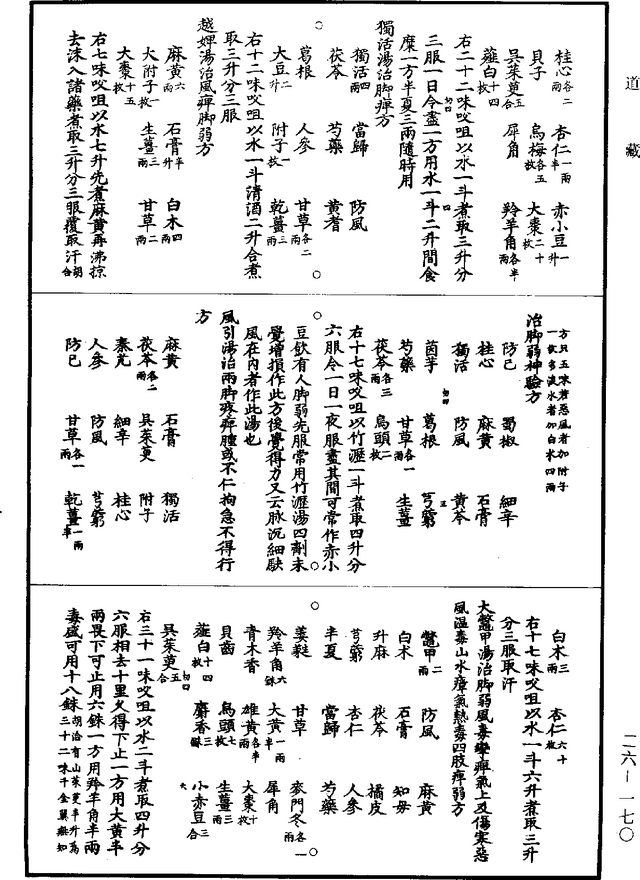 道藏
桂心各二兩 杏仁一兩半 赤小豆一升
貝子 烏梅各五枚 大棗二十枚
吳茱萸五合 犀角 羚羊角各半兩
薤白十四枚
右二十二味㕮咀以水一斗煮取三升分
三服一日令盡一方用水一斗二升間食
糜一方半夏三兩隨時用
獨活湯治脚痺方
獨活四兩 當歸 防風
茯苓 芍藥 黃耆
葛根 人參 甘草各二兩
大豆一升 附子一枚 乾薑三兩
右十二味㕮咀以水一斗清酒二升合煮
取三升分三服
越婢湯治風痺脚弱方
麻黃六兩 石膏半升 白术四兩
大附子一枚 生薑三兩 甘草二兩
大棗十五枚
右七味㕮咀以水七升先煮麻黃再沸掠
去沫入諸藥煮取三升分三服覆取汗胡洽
方只五味若惡風者加附子
一枚多淡水者加白术四兩
治脚弱神驗方
防已 蜀椒 細辛
桂心 麻黃 石膏
獨活 防風 黃芩
茵芋 葛根 芎藭
芍藥 甘草各一兩 生薑
茯苓各三兩 烏頭二枚
右十七味㕮咀以竹瀝一斗煮取四升分
六服令一日一夜服盡其間可常作赤小
豆飲有人脚弱先服常用竹瀝湯四劑未
覺增損作此方後覺得力又云脉沉細駃
風在內者作此湯也
風引湯治兩脚疼痺腫或不仁拘急不得行
方
麻黃 石膏 獨活
茯苓各二兩 吳茱萸 附子
秦艽 細辛 桂心
人參 防風 芎藭
防已 甘草各一兩 乾薑一兩半
白术三兩 杏仁六十枚
右十七味㕮咀以水一斗六升煮取三升
分三服取汗
大鼈甲湯治脚弱風毒攣痺氣上及傷寒惡
風溫毒山水瘴氣熱毒四肢痺弱方
鼈甲二兩 防風 麻黃
白术 石膏 知母
升麻 茯苓 橘皮
芎藭 杏仁 人參
半夏 當歸 芍藥
萎蕤 甘草 麥門冬各一兩
羚羊角六銖 大黃一兩半 犀角
青木香 雄黃各半兩 大棗十枚
貝齒 烏頭七枚 生薑三兩
薤白十四枚 麝香三銖 小赤豆三合
吳茱萸五合
右三十一味㕮咀以水二斗煮取四升分
六服相去十里久得下止一方用大黃半
兩畏下可止用六銖一方用羚羊角半兩
毒盛可用十八銖胡洽有山茱萸半升爲三十二味千金翼無知
二六—一七〇